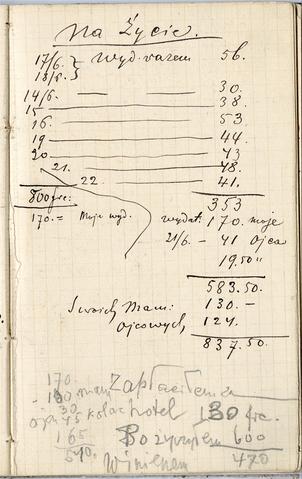 Na Życie.
17/6. } Wyd. razem 56.
18/6.
14/6. — 30.
15 38.
16. 53
19 44.
20 43
21. 48.
22. 41.
800 frc: 353
170.= Moje wyd. wydat. 170. moje
21/6. – 41 Ojca
19.50 "
583.50.
Swoich Mam: 130.–
Ojcowych 124.
837.50.
170.
mam Zapłaciłem
30
45 kolac hotel 130 frc.
165 Pożyczyłem 600
510. Winienem 470